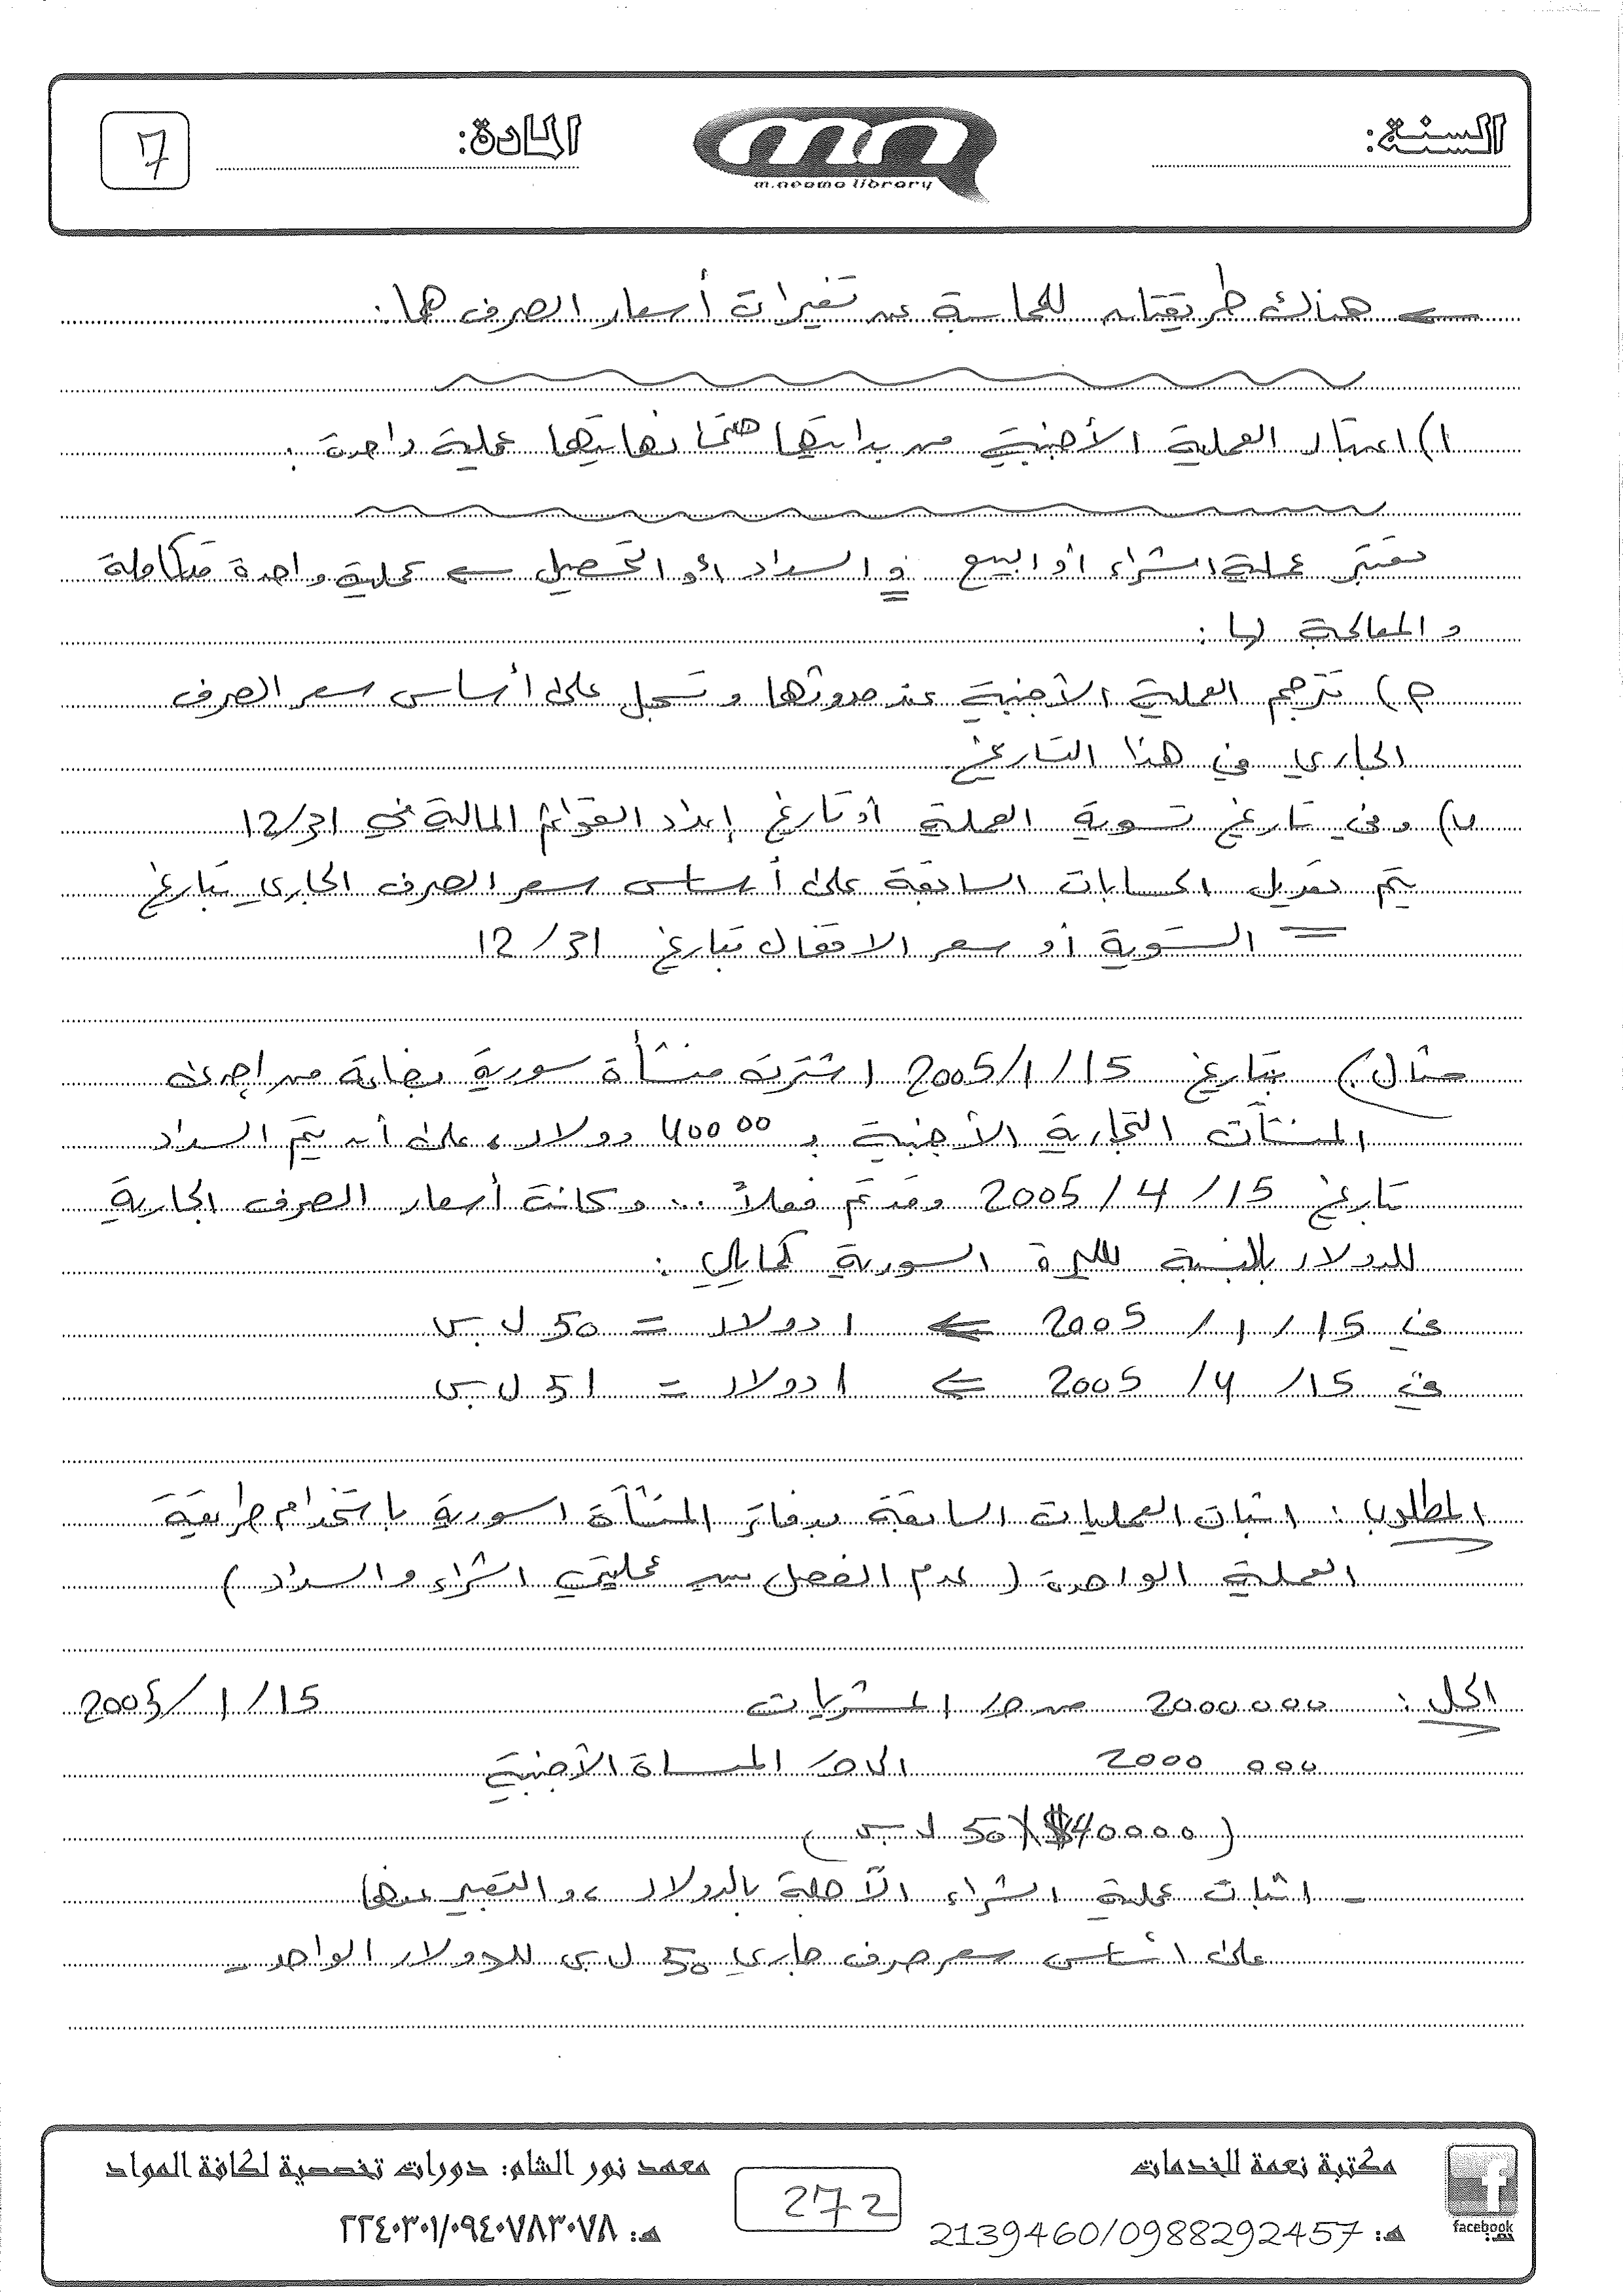 السنة:
m.neama library
المادة:
7
← هناك طريقتان للمحاسبة عن تغيرات أسعار الصرف هما:
1) اعتبار العملية الأجنبية من بدايتها حتى نهايتها عملية واحدة.
تعتبر عملية الشراء أو البيع و السداد أو التحصيل ← عملية واحدة متكاملة
و المعالجة لها:
م) تترجم العملية الأجنبية عند حدوثها و تسجل على أساس سعر الصرف
الجاري في هذا التاريخ
ں) و في تاريخ تسوية العملية أو تاريخ إعداد القوائم المالية في 12/31
يتم تعديل الحسابات السابقة على أساس سعر الصرف الجاري بتاريخ
التسوية أو سعر الاقفال بتاريخ 12/31
مثال) بتاريخ 15/1/2005 اشترت منشأة سورية بضاعة من إحدى
المنشآت التجارية الأجنبية بـ 40000 دولار، على أن يتم السداد
تاريخ 15/4/2005 وقد تم فعلاً .. و كانت أسعار الصرف الجارية
للدولار بالنسبة لليرة السورية كما يلي:
في 15/1/2005 ⇐ 1 دولار = 50 ل.س
في 15/4/2005 ⇐ 1 دولار = 51 ل.س
المطلوب: اثبات العمليات السابقة بدفاتر المنشأة السورية باستخدام طريقة
العملية الواحدة (عدم الفصل بين عمليتي الشراء و السداد)
الحل: 2000000 من حـ/ المشتريات 15/1/2005
2000000 الى حـ/ المنشأة الأجنبية
(40000$ × 50 ل.س)
- اثبات عملية الشراء الآجلة بالدولار، و التعبير عنها
على أساس سعر صرف جاري 50 ل.س للدولار الواحد -
مكتبة نعمة للخدمات
هـ: 2139460/0988292457
272
معهد نور الشام: دورات تخصصية لكافة المواد
هـ: ٢٢٤٠٣٠١/٠٩٤٠٧٨٣٠٧٨
facebook